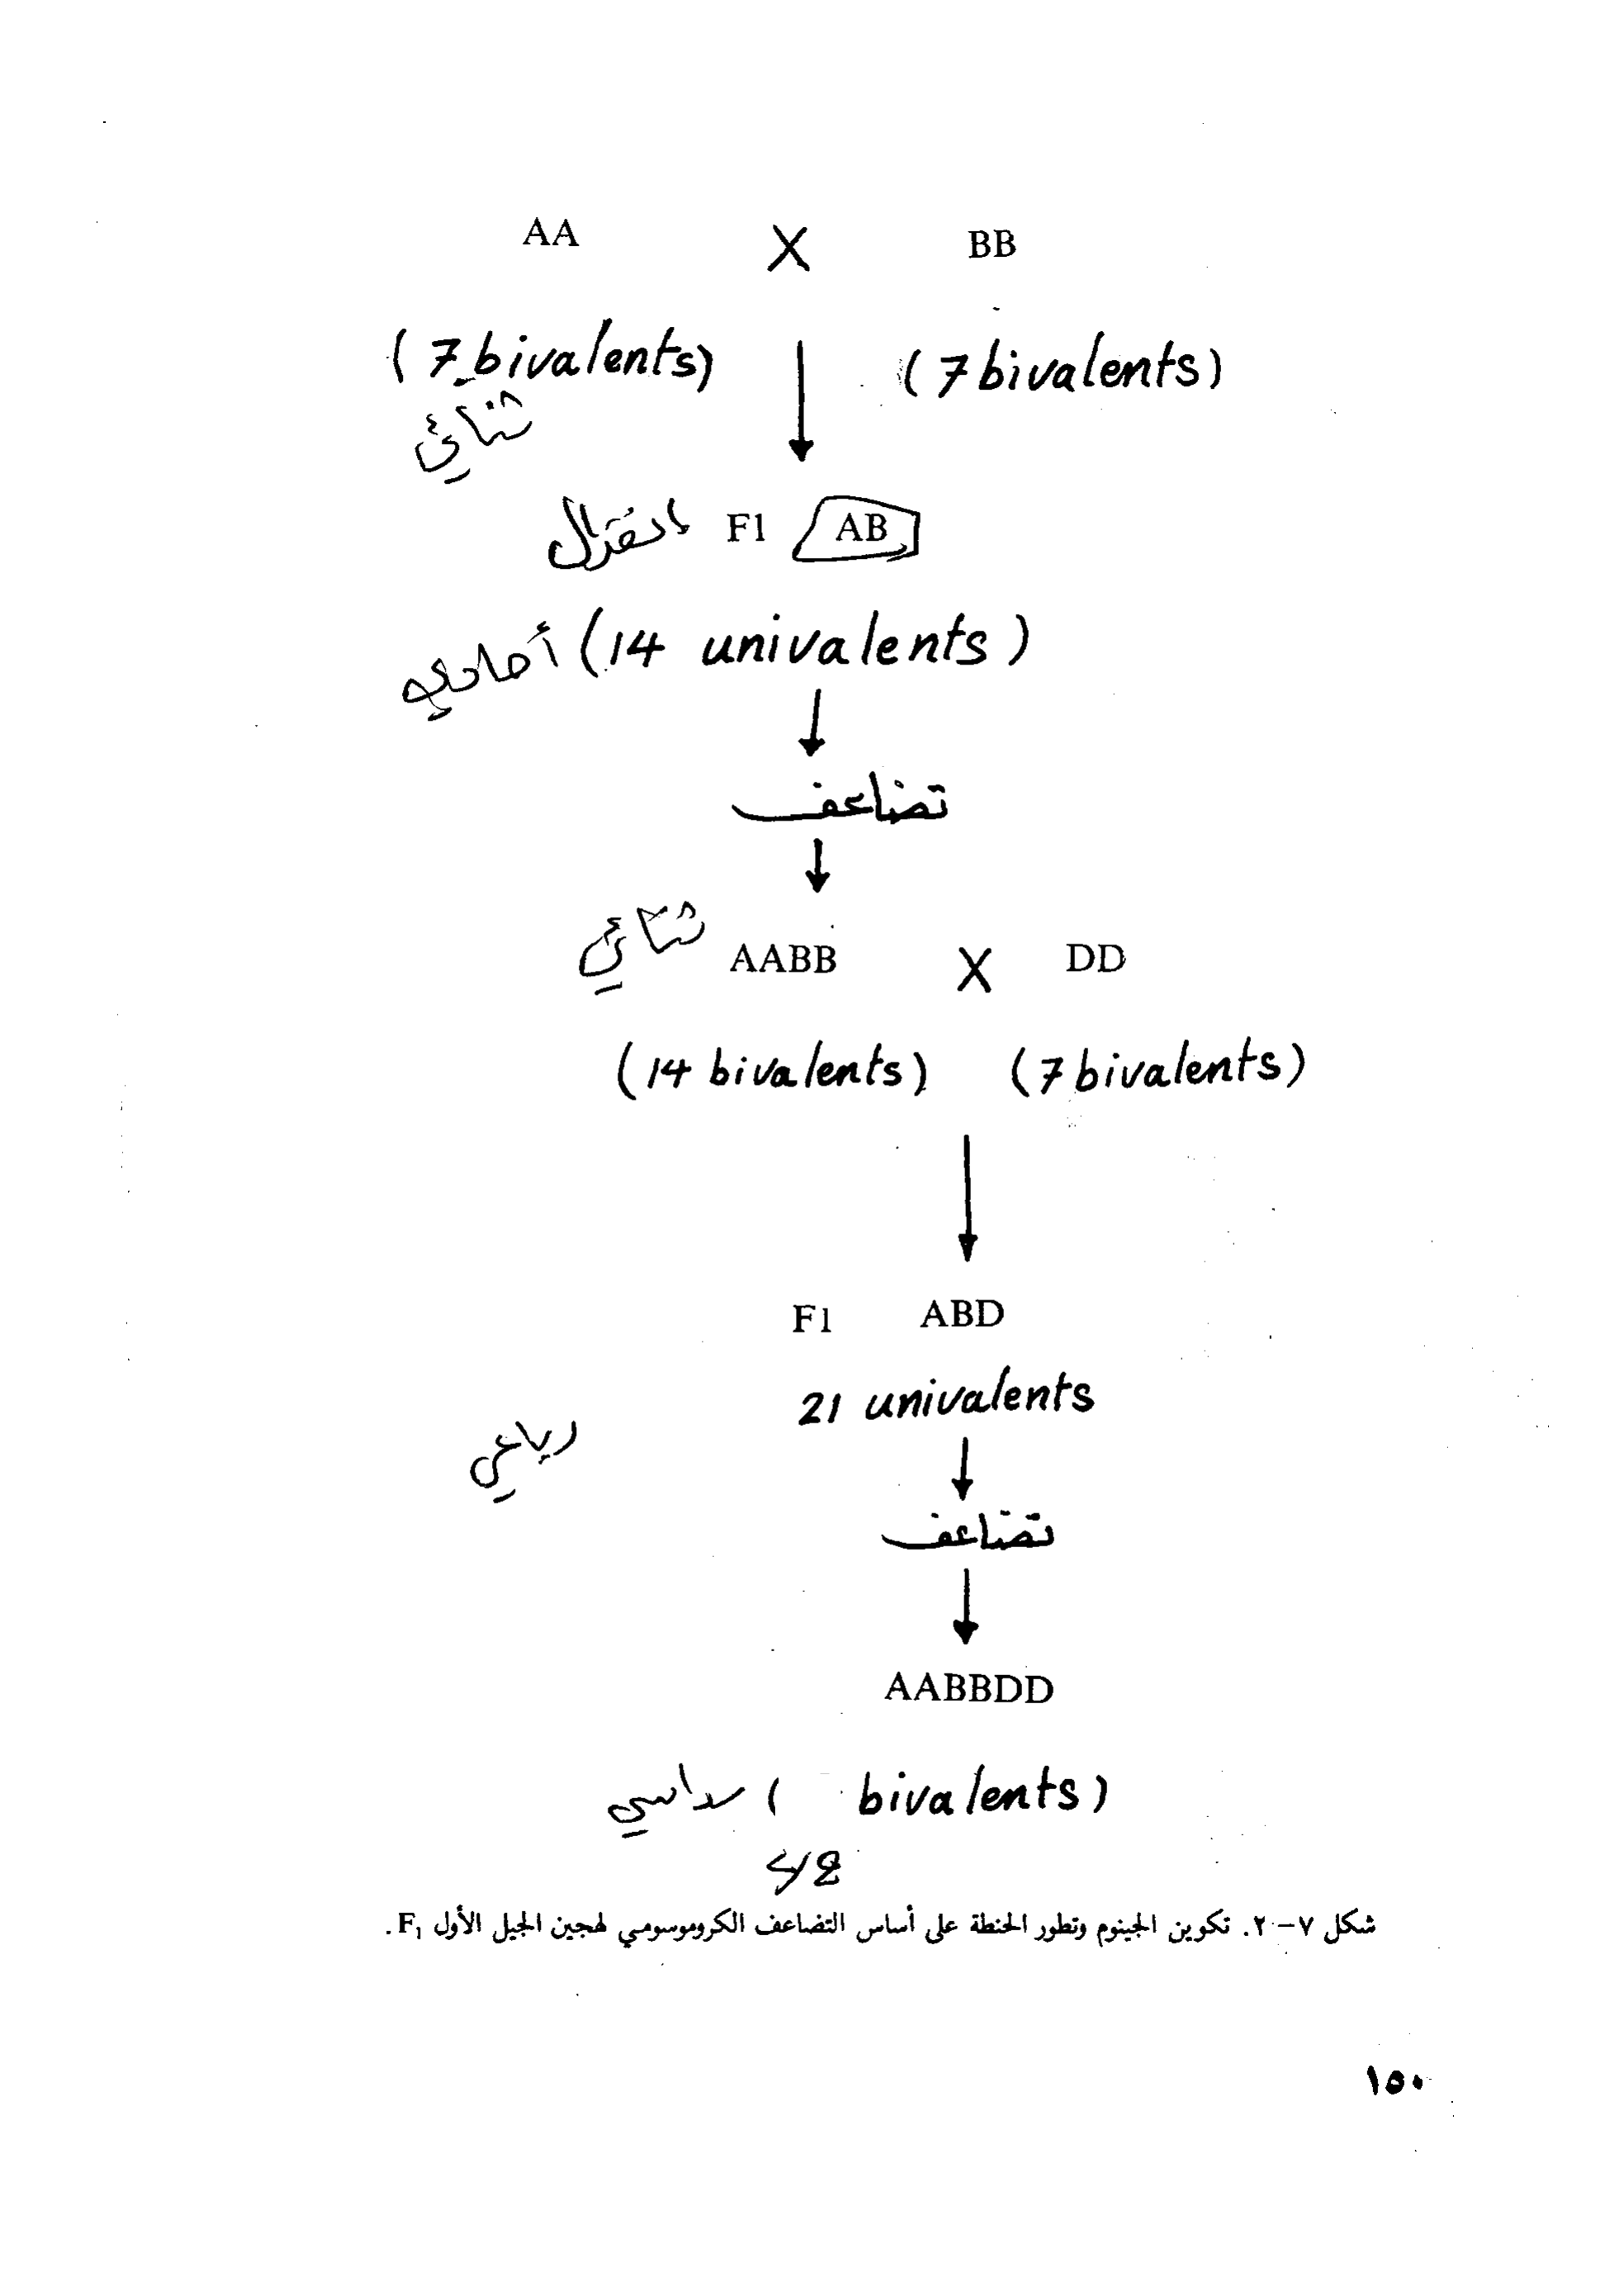 AA X BB
(7 bivalents) (7 bivalents)
ثنائي
F1 AB
أحاديه (14 univalents)
تضاعف
ثنائي AABB X DD
(14 bivalents) (7 bivalents)
F1 ABD
21 univalents
رباعي
تضاعف
AABBDD
سداسي ( bivalents)
42
شكل ٧-٢. تكوين الجينوم وتطور الحنطة على أساس التضاعف الكروموسومي لهجين الجيل الأول F₁.
١٥٠